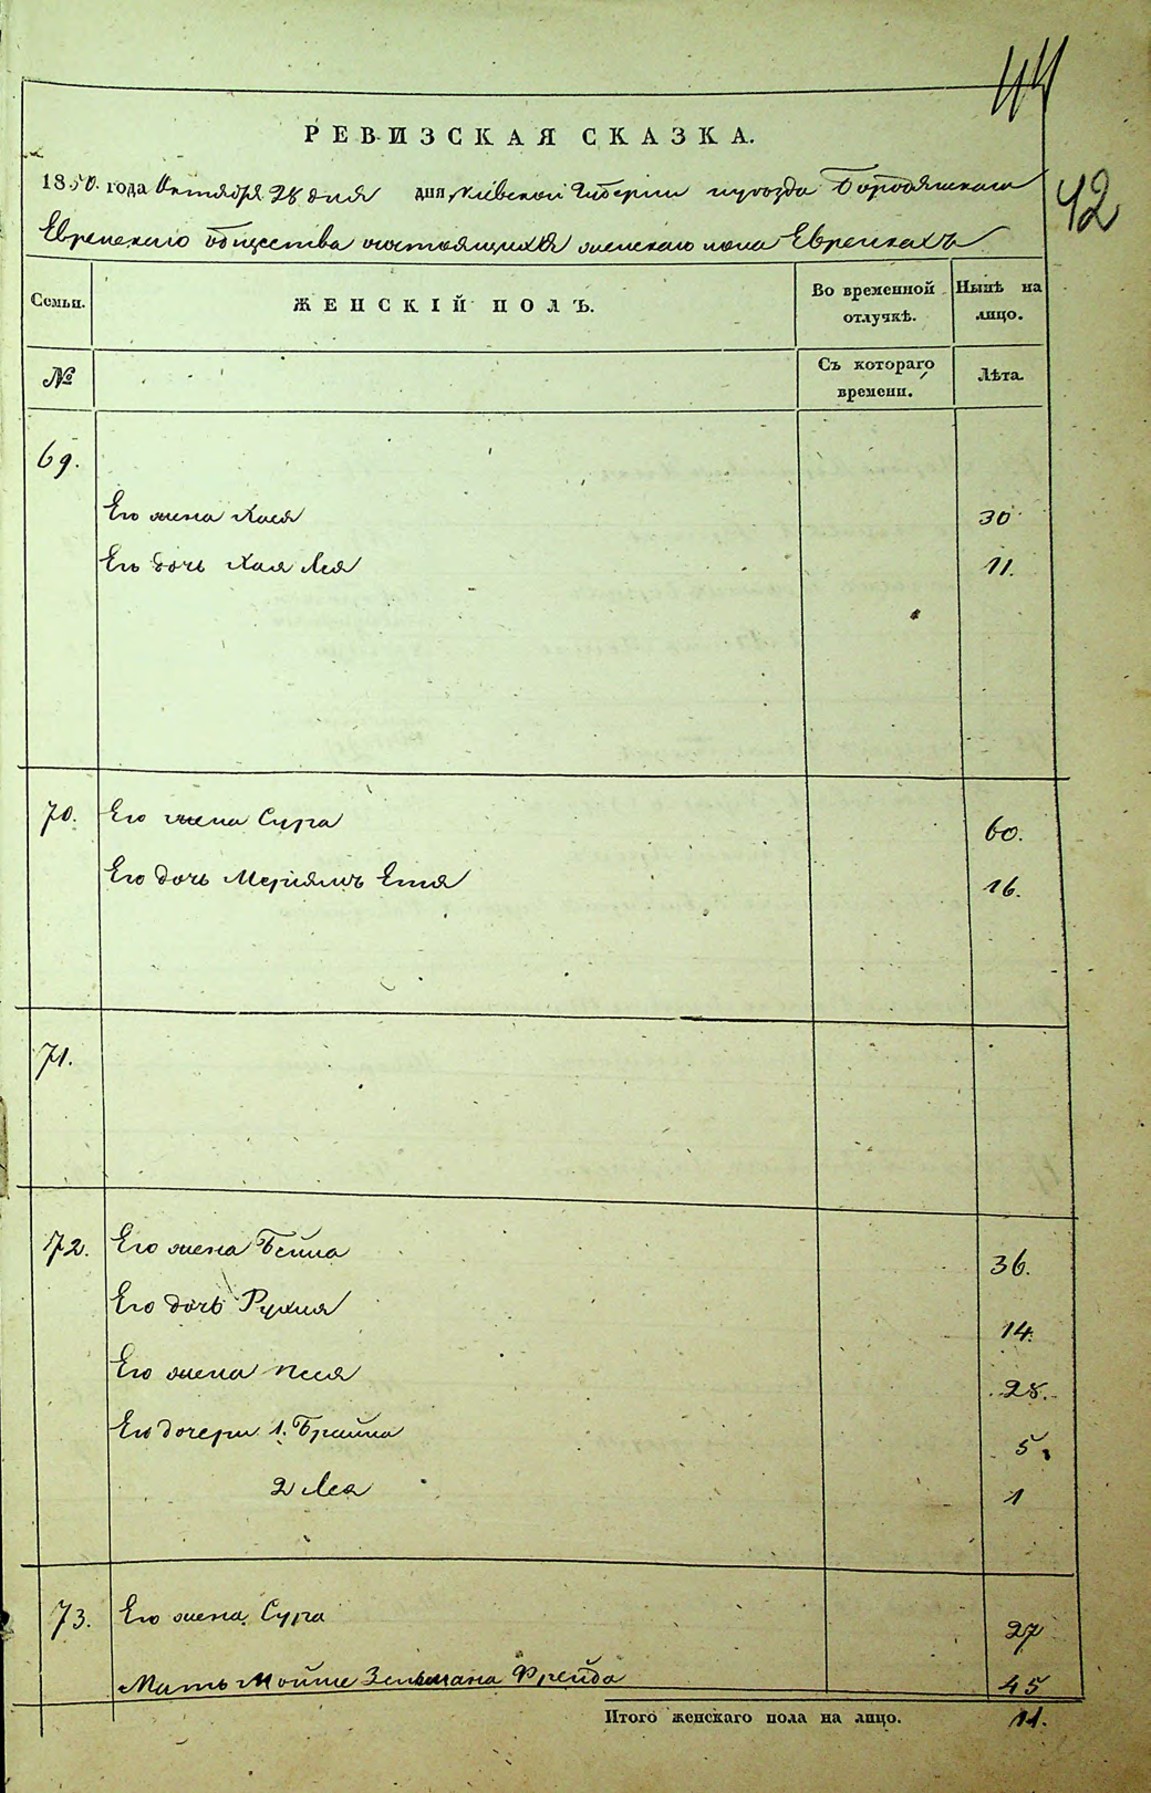 44
РЕВИЗСКАЯ СКАЗКА.
1850. года Октября 28 дня дня Кіевской Губерніи и уѣзда Бородянскаго
42
Еврейскаго общества состоящихъ женскаго пола Еврейкахъ
Семьи. ЖЕНСКІЙ ПОЛЪ. Во временной отлучкѣ. Нынѣ на лицо.
№ Съ котораго времени. Лѣта.
69.
Его жена Хася 30
Его дочь Хая Лея 11.
70. Его жена Сура 60.
Его дочь Меріямъ Етя 16.
71.
72. Его жена Бейла 36.
Его дочь Рухля 14.
Его жена Песя 28.
Его дочери 1. Брайна 5.
2 Лея 1
73. Его жена Сура 27
Мать Мойше Зельмана Фрейда 45
Итого женскаго пола на лицо. 11.